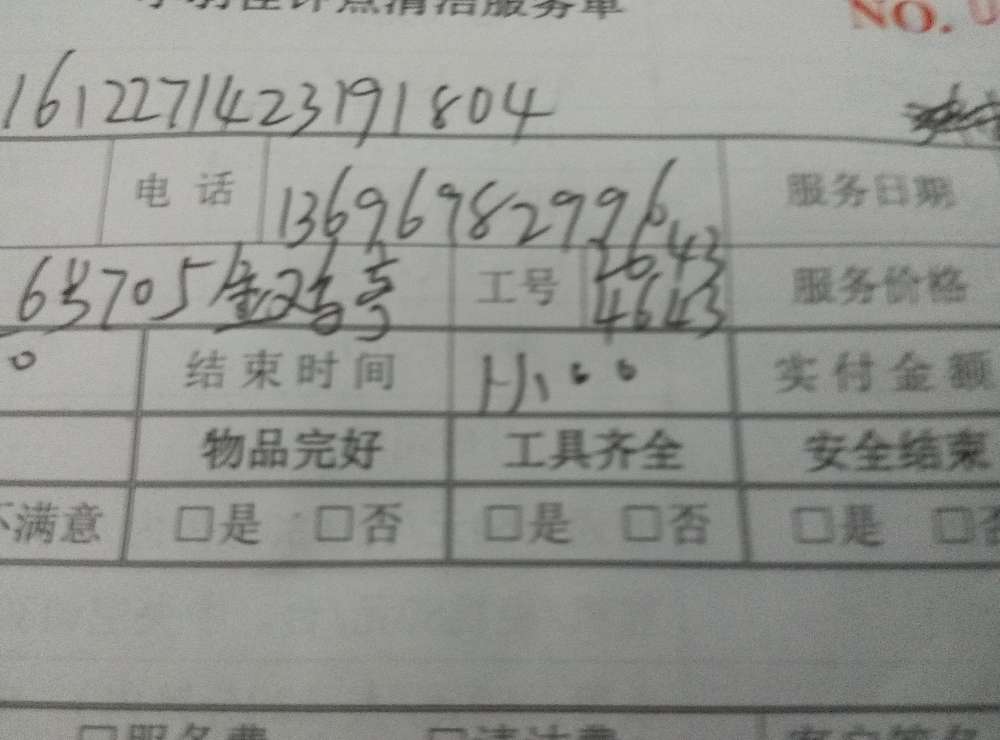 钟点清洁服务单 NO.
1612271423191804
电话 13696982996 服务日期
工号 2643 4643 服务价格
结束时间 11:00 实付金额
物品完好 工具齐全 安全结束
不满意 □是 □否 □是 □否 □是 □否
□服务费